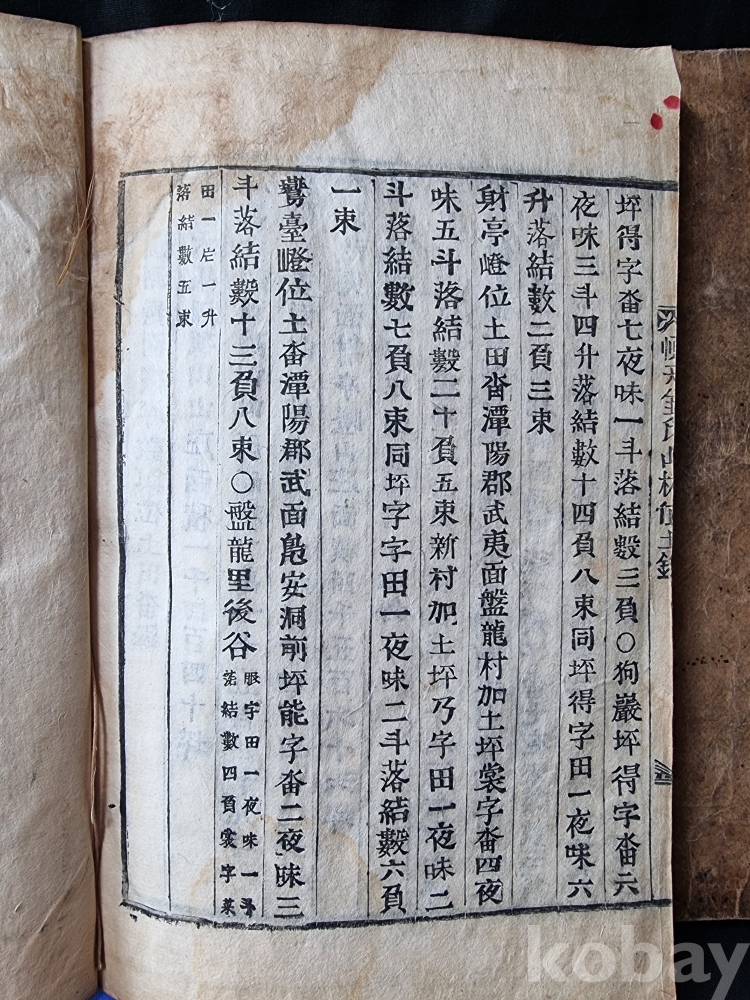 坪得字畓七夜味一斗落結數三負○狗巖坪得字畓六
夜味三斗四升落結數十四負八束同坪得字田一夜味六
升落結數二負三束
射亭嶝位土田畓潭陽郡武夷面盤龍村加土坪裳字畓四夜
味五斗落結數二十負五束新村加土坪乃字田一夜味二
斗落結數七負八束同坪字字田一夜味二斗落結數六負
一束
鸞臺嶝位土畓潭陽郡武面鳧安洞前坪能字畓二夜味三
斗落結數十三負八束○盤龍里後谷
服字田一夜味一斗
落結數四負裳字菜
田一庄一升
落結數五束
氏山
位土錄
kobay